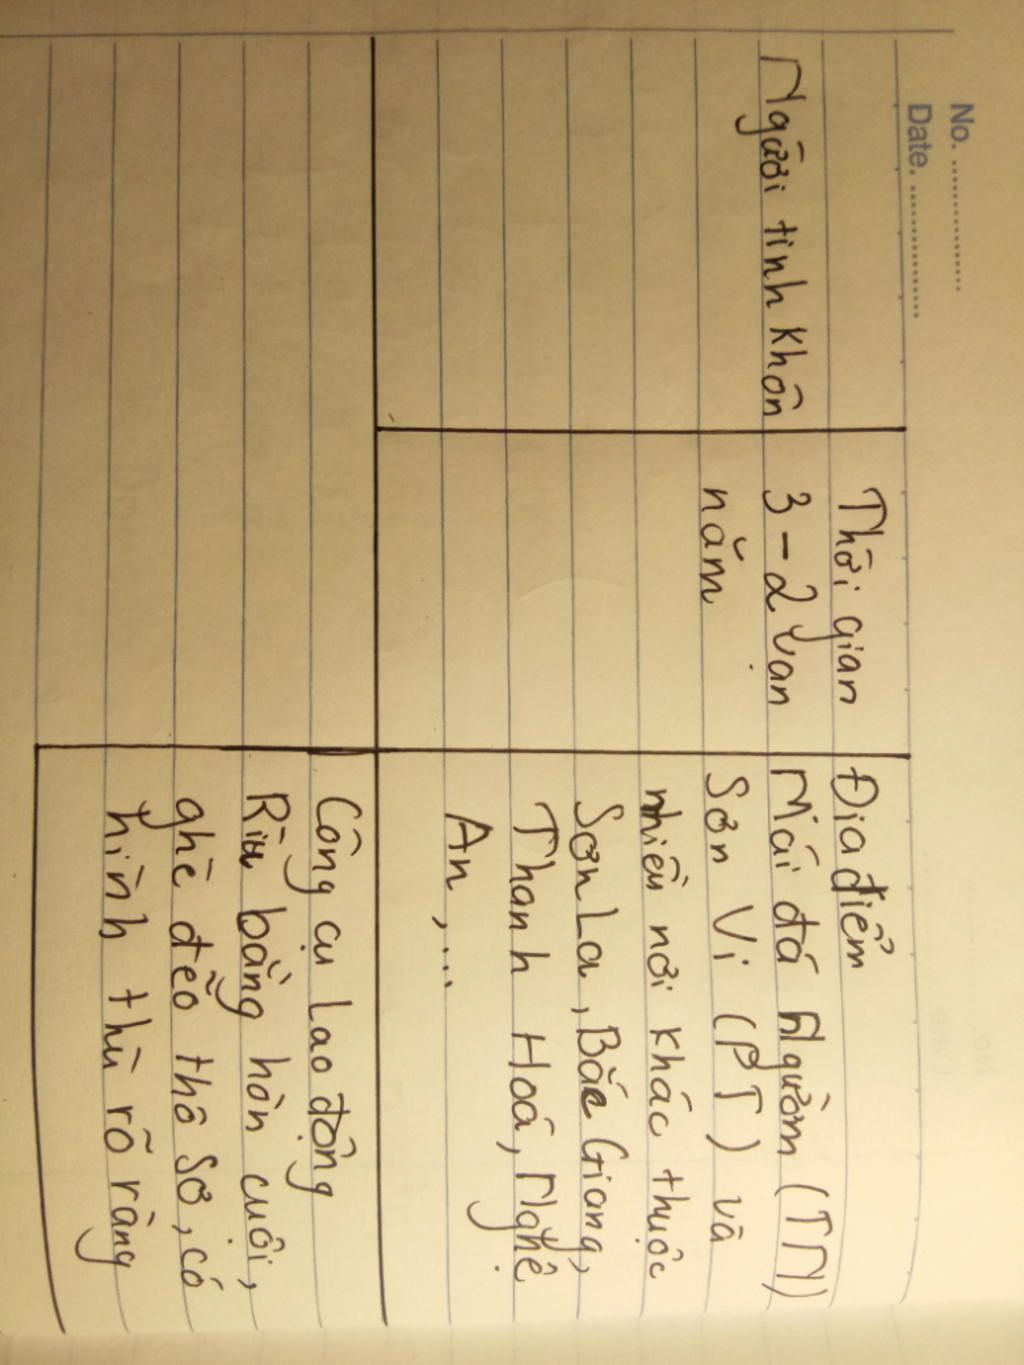 No. ..............
Date. ..............
Thời gian
Địa điểm
Người tinh khôn
3-2 vạn
năm
Mái đá Ngườm (TN)
Sơn Vi (PT) và
nhiều nơi khác thuộc
Sơn La, Bắc Giang,
Thanh Hoá, Nghệ
An,...
Công cụ Lao động
Rìu bằng hòn cuội,
ghè đẽo thô sơ, có
hình thù rõ ràng